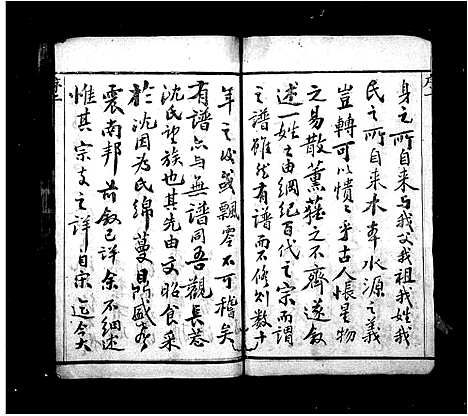 身之所自来与我父我祖我姓我
民之所自来水本水源之義
豈轉可以愦之乎古人悵是物
之易散薰蕕之不齊遂叙
述一姓之由綱纪百代之宗而謂
之譜雖然有譜而不修则数十
年之後或飄零不可稽矣
有譜亦与無譜同吾觀長巷
沈氏望族也其先由文昭食采
於沈因为氏綿蔓昌盛声
震南邦前叙已詳余不綱述
惟其宗支之詳自宋迄今大
序二